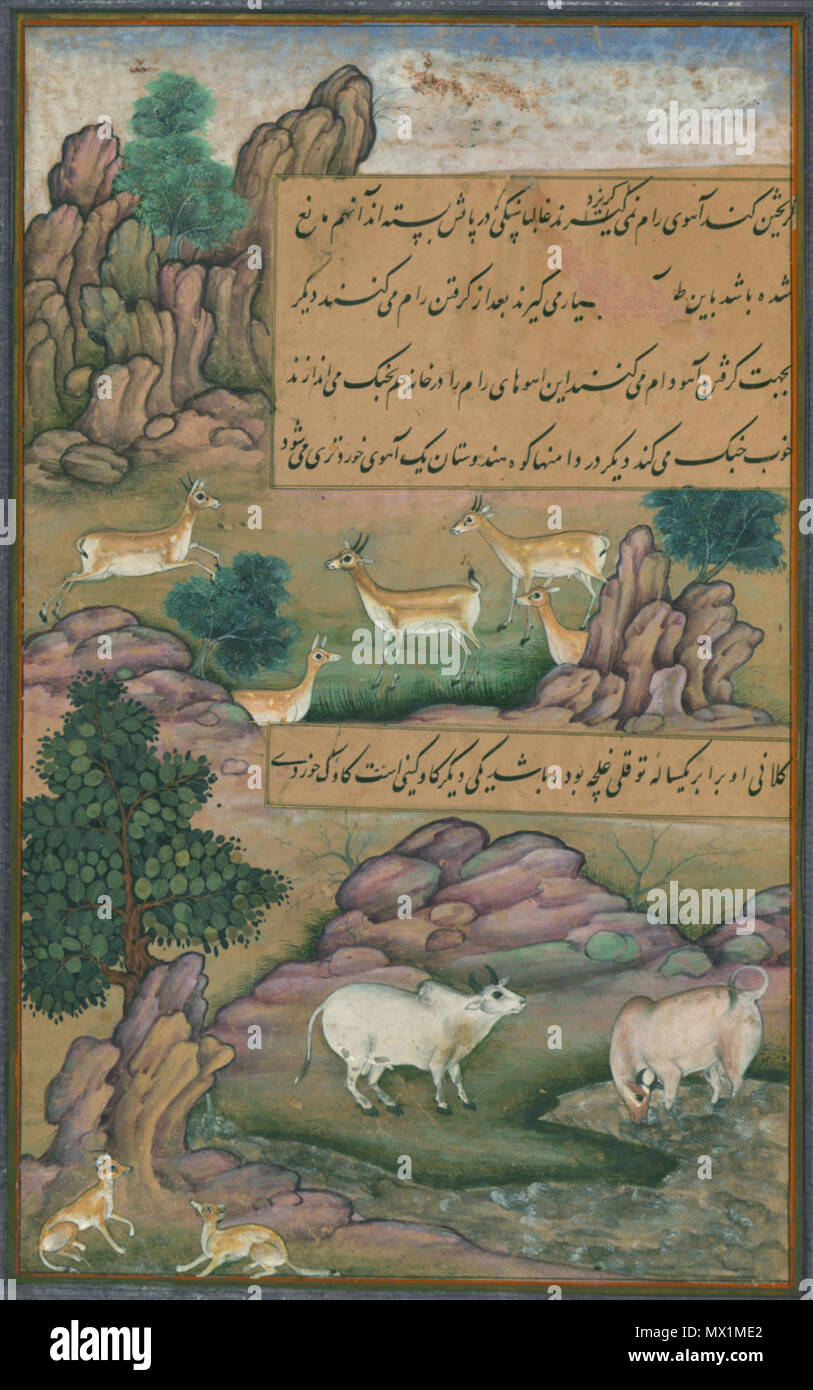 گریختن کند آهوی رام نمی گریزد گیرند غالبا پسنکی در پاش بسته اند آنهم مانع
شده باشد باین ط بسیار می گیرند بعد از گرفتن رام می کنند دیگر
بجهت گرفتن آهو دام می کنند این آهوهای رام را در خانه هم بجنک می اندازند
خوب جنک می کند دیگر در دامنهای کوه هندوستان یک آهوی خوردتری می شود
کلانی او برابر یکساله توقلی غلچه بوده باشد یکی دیگر کاوکینی است کاویک خوردی
alamy
alamy
Image ID: MX1ME2
www.alamy.com